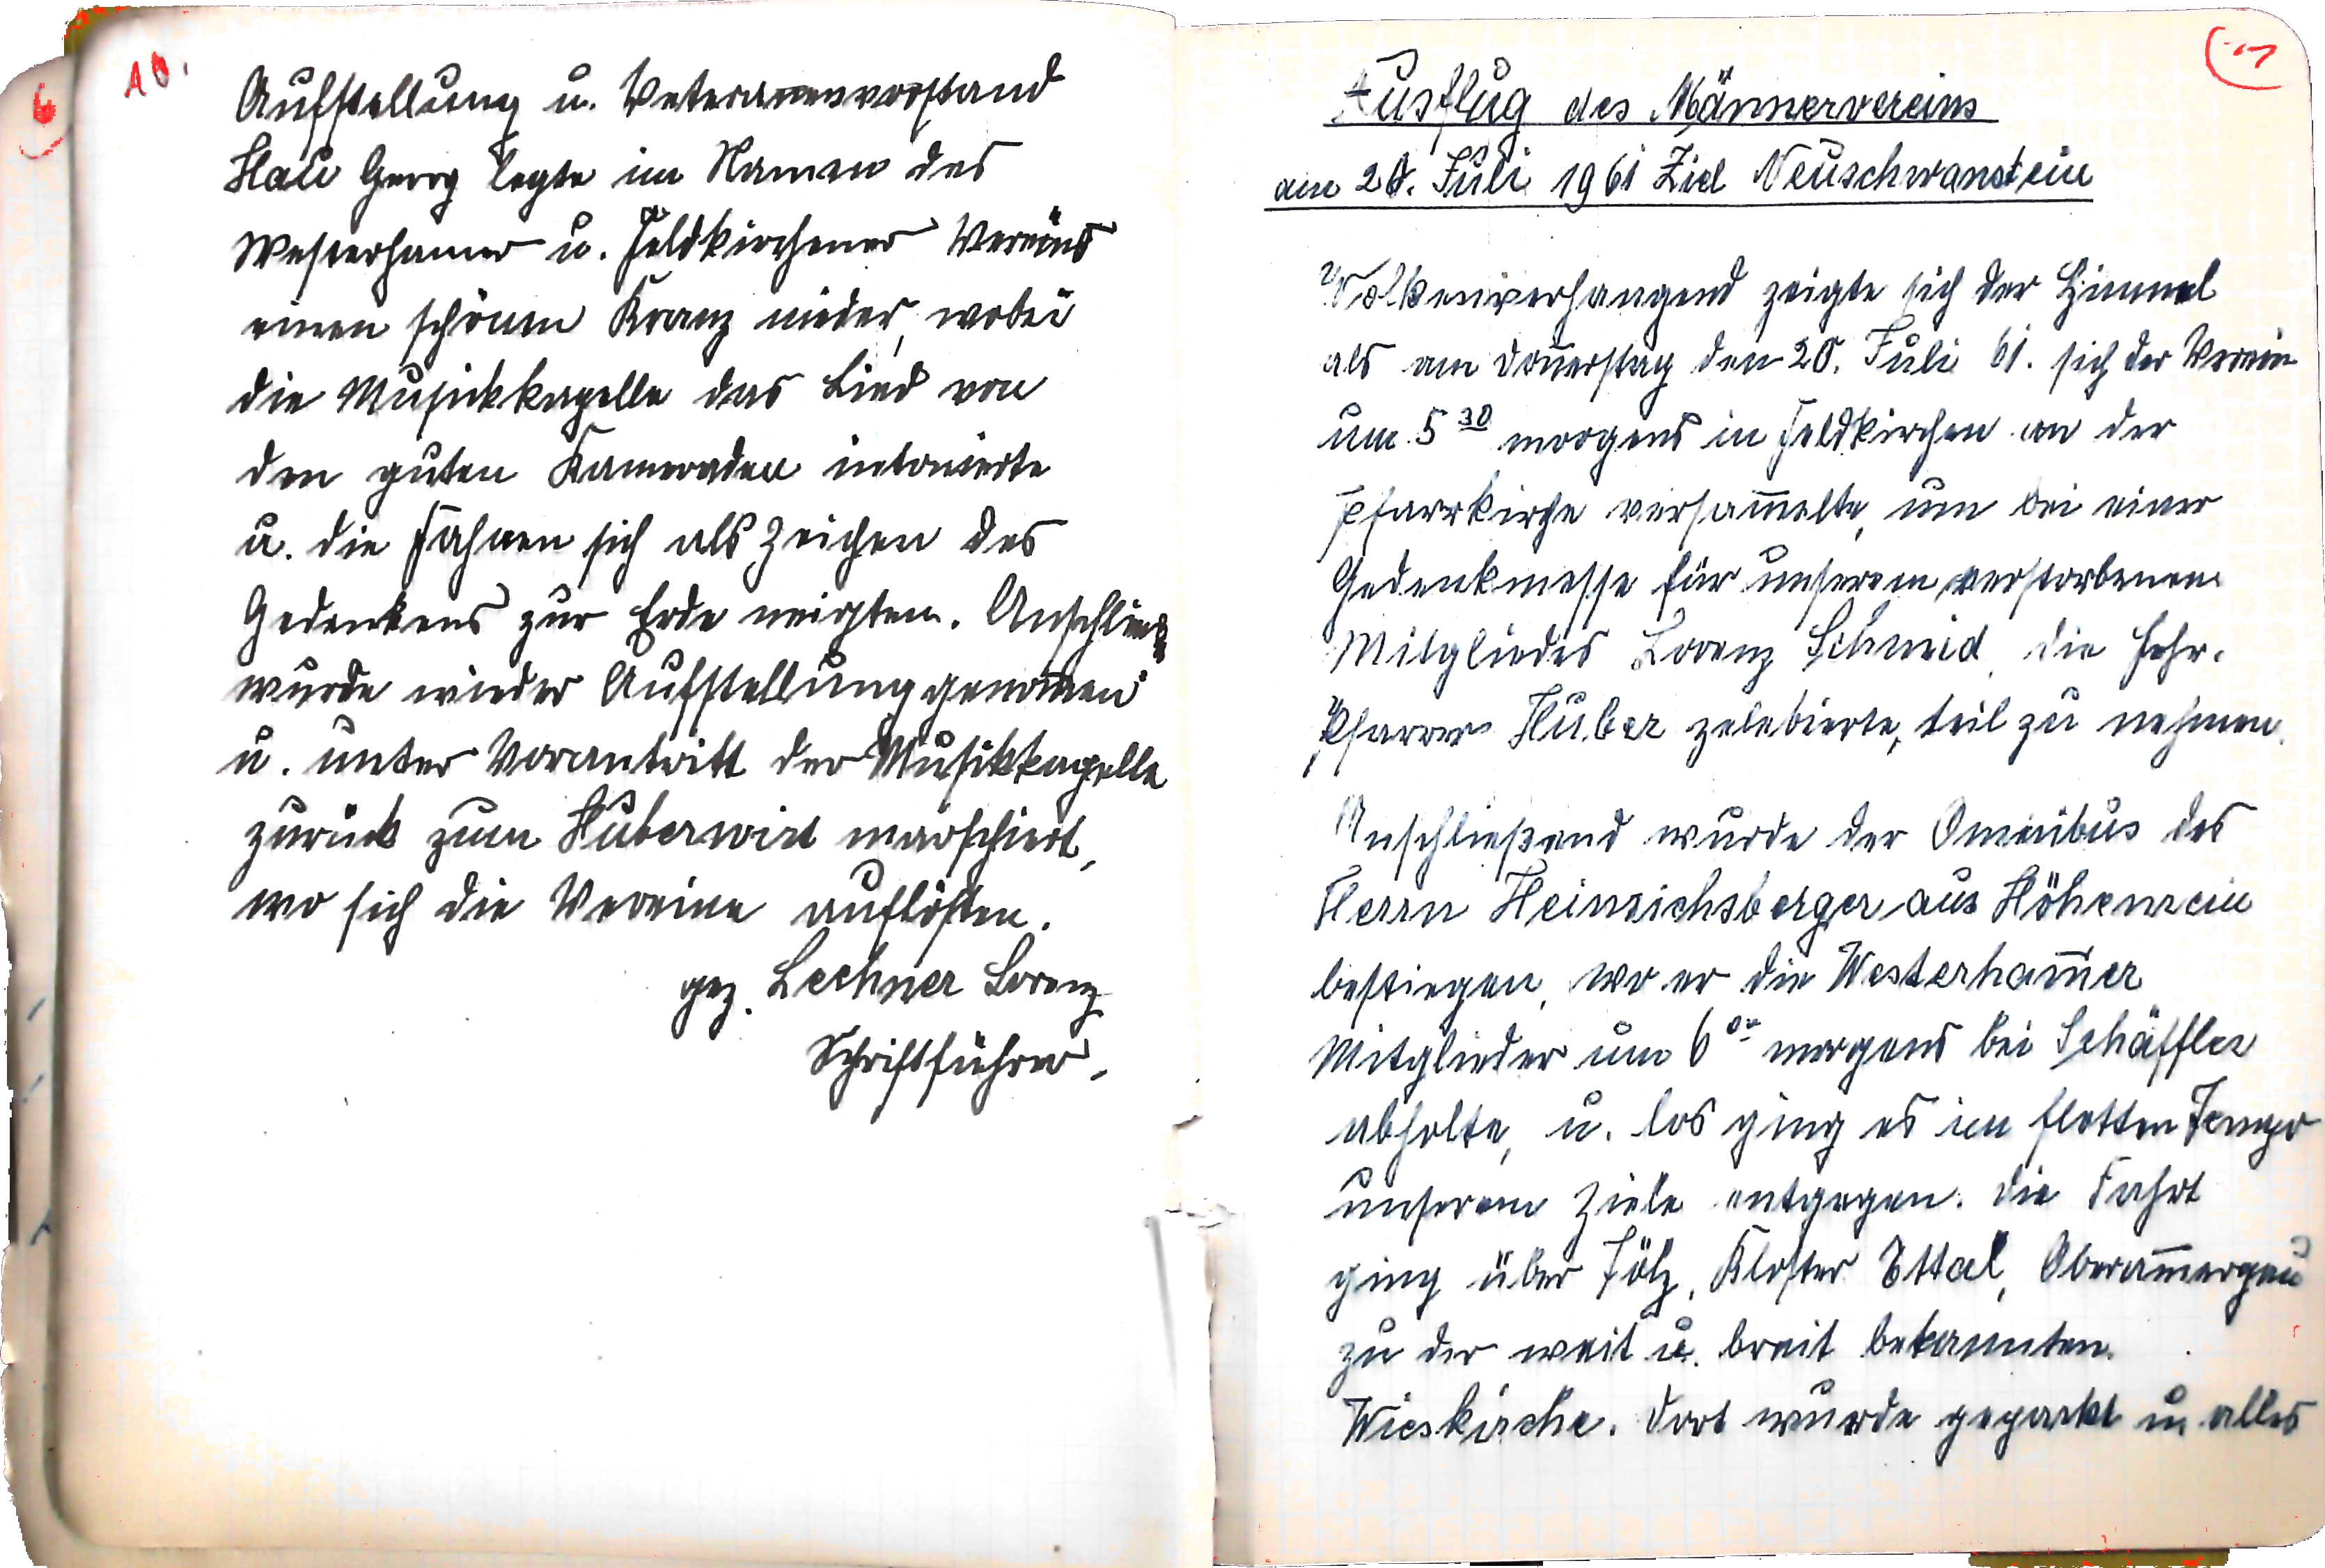 10.
Aufstellung u. Veteranenvorstand
Hau Georg legte im Namen des
Westerhamer u. Feldkirchener Vereins
einen schönen Kranz nieder, wobei
die Musikkapelle das Lied von
den guten Kameraden intonierte
u. die Fahnen sich als Zeichen des
Gedenkens zur Erde neigten. Anschließ
wurde wieder Aufstellung genom̄en
u. unter Vorantritt der Musikkapelle
zurück zum Huberwirt marschiert,
wo sich die Vereine auflösten.
gez. Lechner Lorenz
Schriftführer.
Ausflug des Männervereins
am 20. Juli 1961 Ziel Neuschwanstein
Wolkenverhangend zeigte sich der Himmel
als am Don̄erstag den 20. Juli 61. sich der Verein
um 5 30 morgens in Feldkirchen an der
Pfarrkirche versam̄elte, um bei einer
Gedenkmesse für unserem verstorbenen
Mitgliedes Lorenz Schmid, die Hohw.
Pfarrer Huber zelebierte, teil zu nehmen.
Anschließend wurde der Omnibus des
Herrn Heinrichsberger aus Höhenrain
bestiegen, wo er die Westerham̄er
Mitglieder um 6 00 morgens bei Schäffler
abholte, u. los ging es im flotten Tempo
unserem Ziele entgegen. Die Fahrt
ging über Tölz, Kloster Ettal, Oberam̄ergau
zu der weit u. breit bekannten
Wieskirche. Dort wurde geparkt u. alles